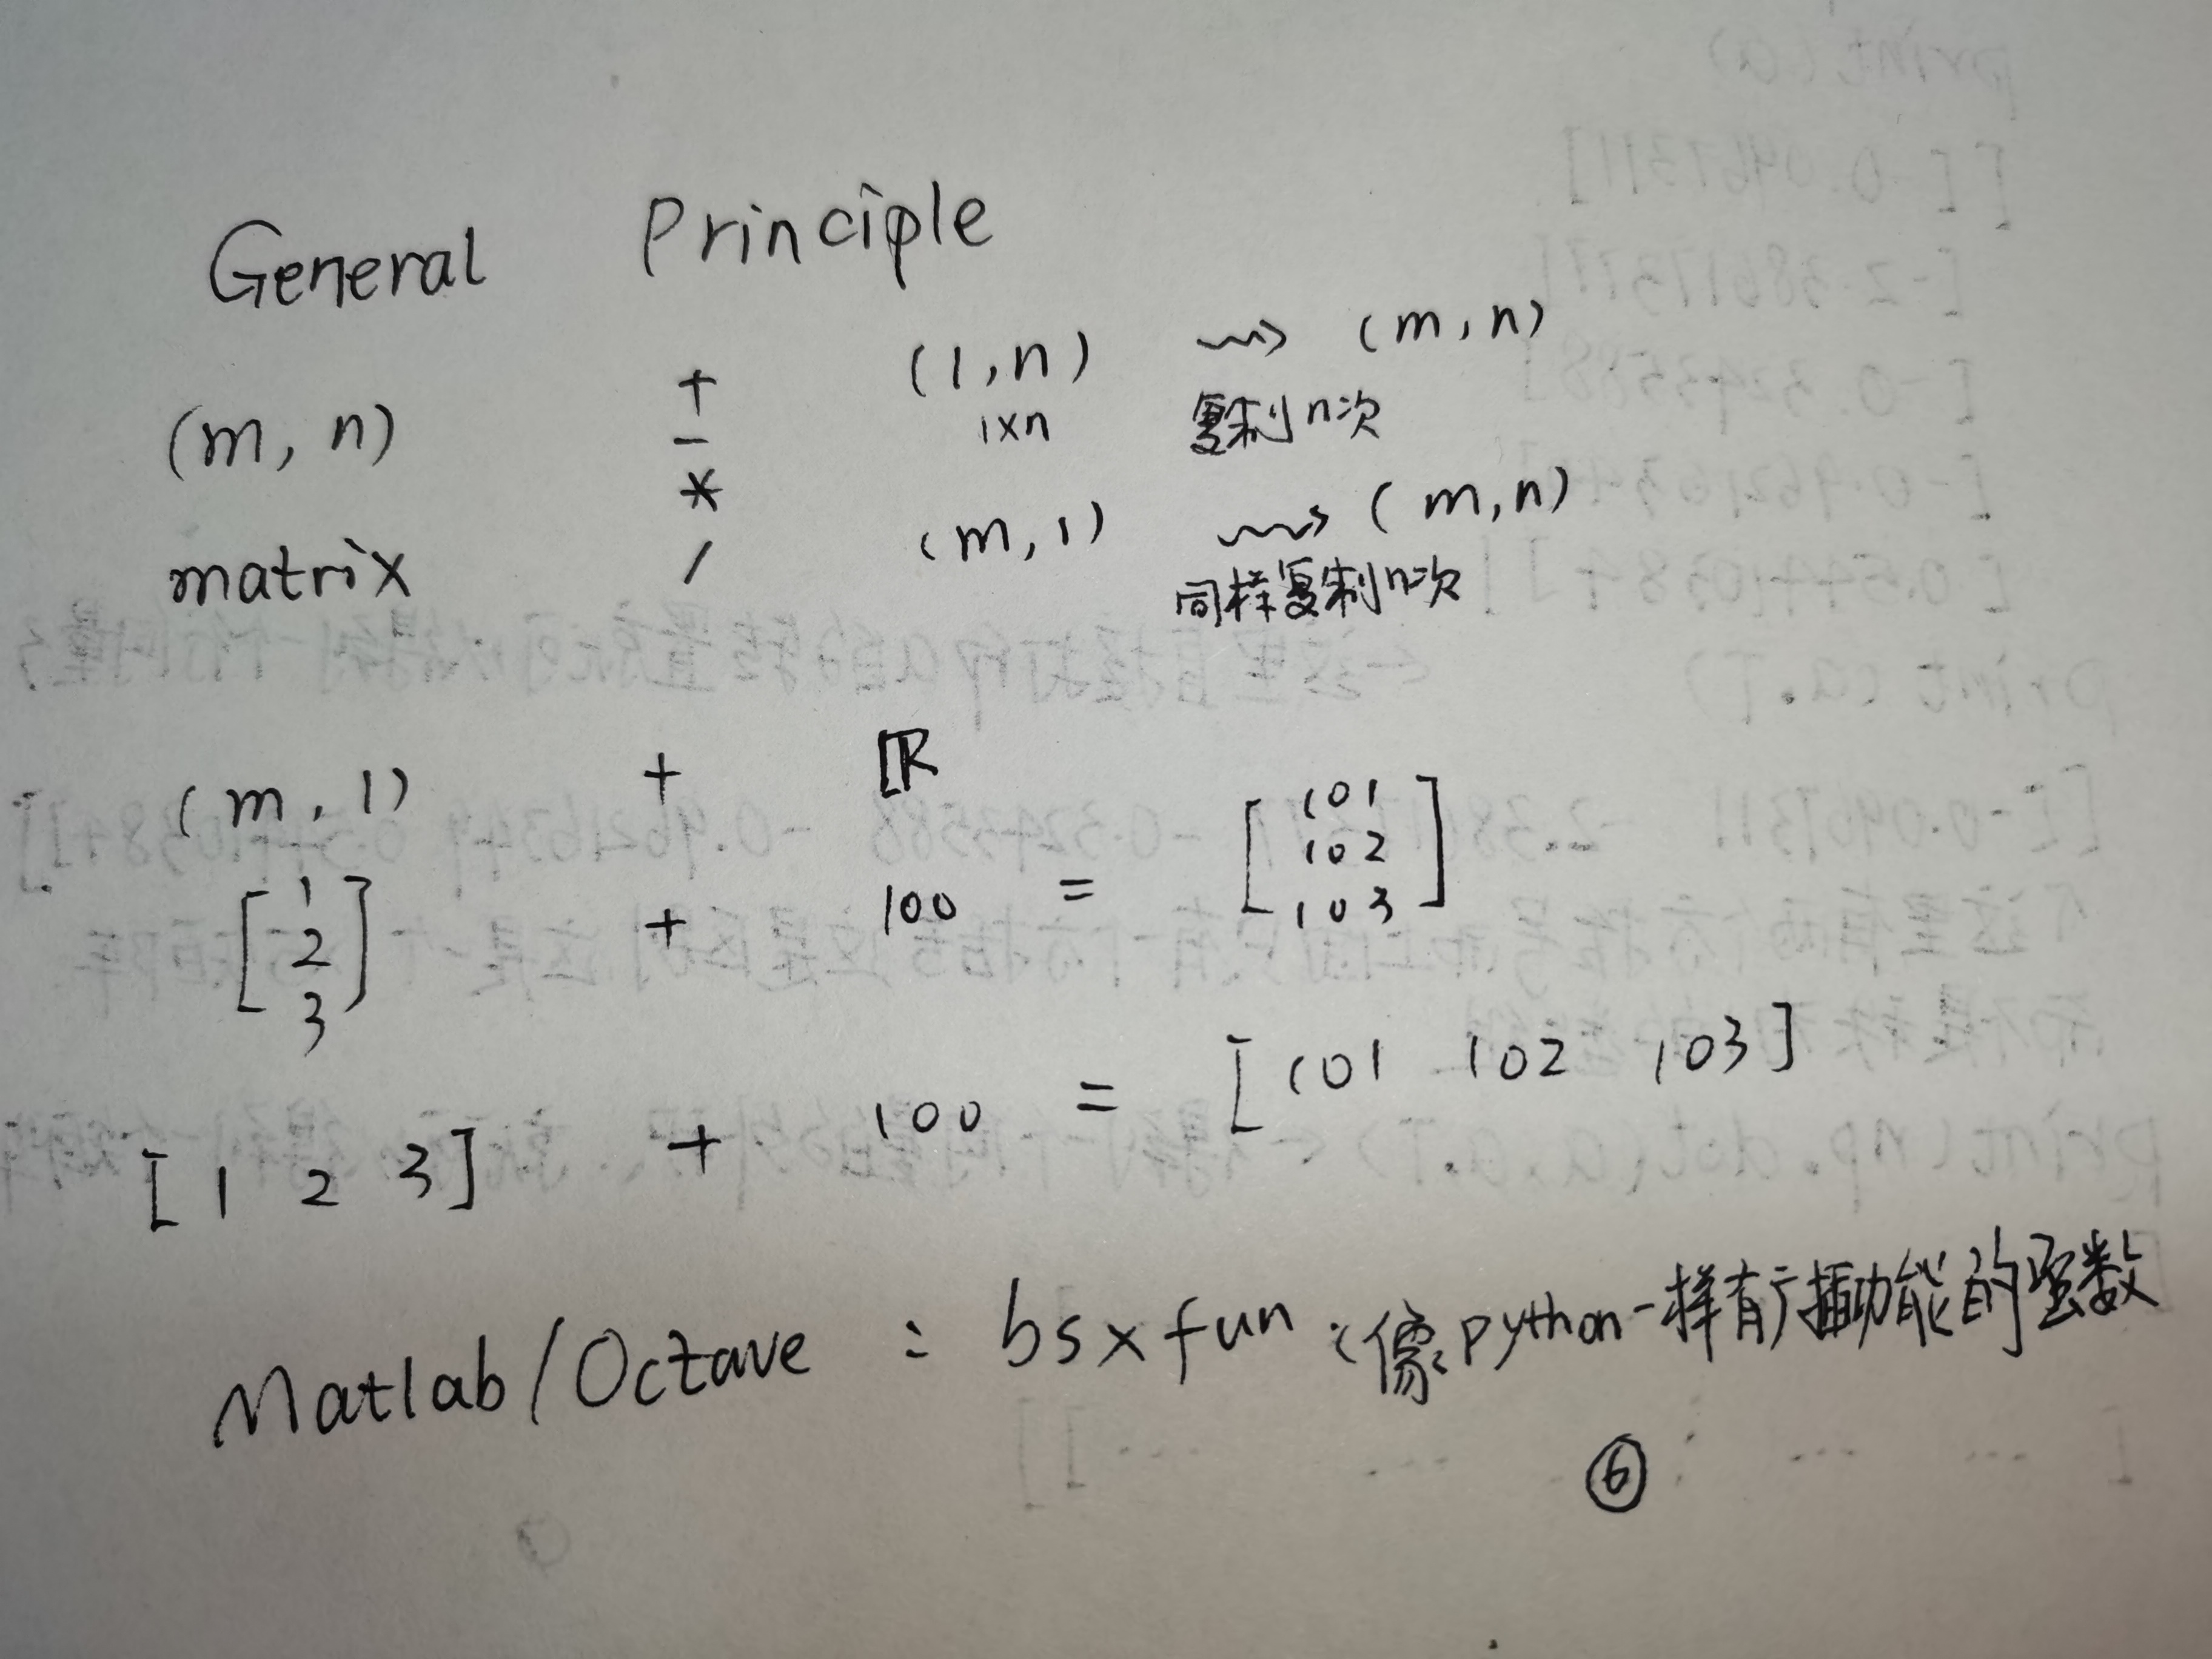 General Principle
(m, n) + (1, n) ⇝ (m, n)
- 1×n 复制n次
*
matrix / (m, 1) ⇝ (m, n)
同样复制n次
(m, 1) + ℝ
[1 2 3] + 100 = [101 102 103]
[1 2 3] + 100 = [101 102 103]
Matlab/Octave : bsxfun :像python一样有广播功能的函数
⑥